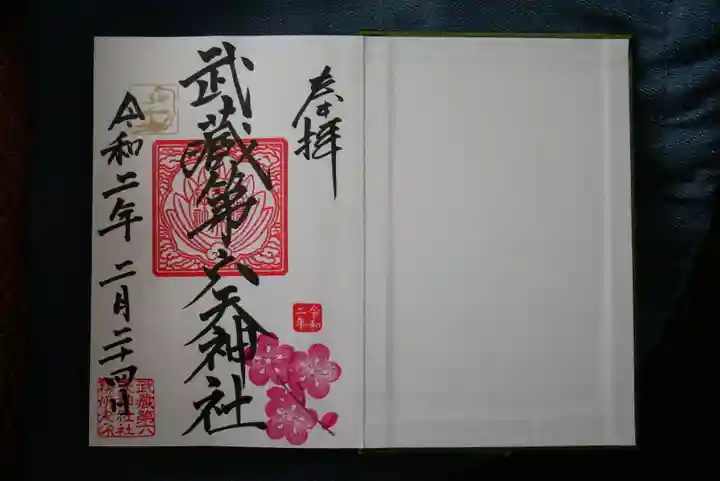 奉拝
武蔵第六天神社
令和二年
令和二年 二月二十四日
武蔵第六